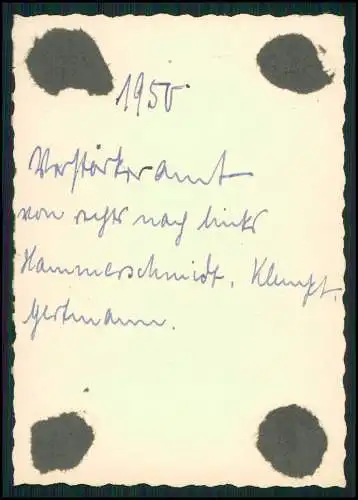 1950
Verstärkeramt
von rechts nach links
Hammerschmidt, Klempt,
Gertmann.